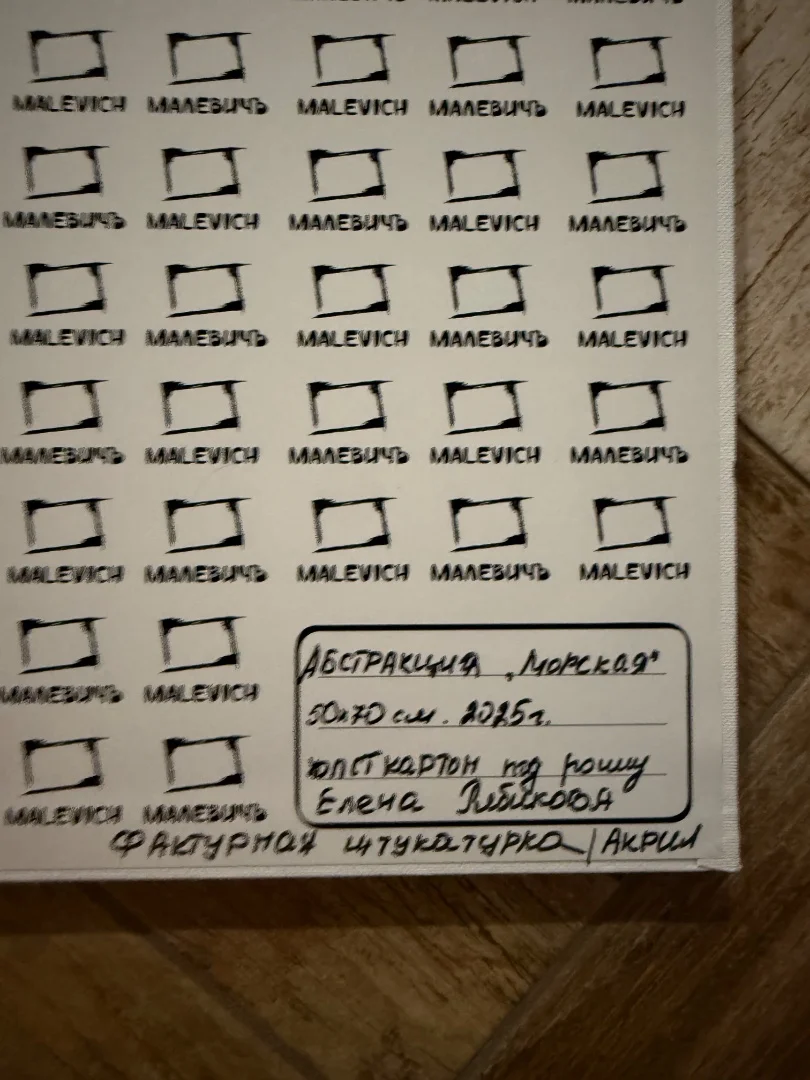 MALEVICH МАЛЕВИЧЪ MALEVICH МАЛЕВИЧЪ MALEVICH
МАЛЕВИЧЪ MALEVICH МАЛЕВИЧЪ MALEVICH МАЛЕВИЧЪ
MALEVICH МАЛЕВИЧЪ MALEVICH МАЛЕВИЧЪ MALEVICH
МАЛЕВИЧЪ MALEVICH МАЛЕВИЧЪ MALEVICH МАЛЕВИЧЪ
MALEVICH МАЛЕВИЧЪ MALEVICH МАЛЕВИЧЪ MALEVICH
МАЛЕВИЧЪ MALEVICH
MALEVICH МАЛЕВИЧЪ
АБСТРАКЦИЯ „Морская"
50х70 см. 2025г.
холст картон под
Елена
Фактурная штукатурка / Акрил